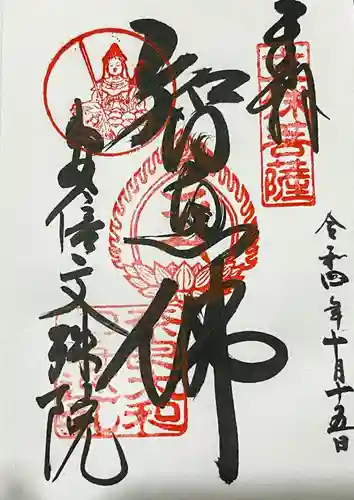 奉拝
文殊菩薩
令和四年十月十五日
智恵佛
安倍文殊院